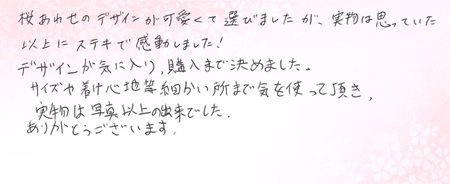 桜あわせのデザインが可愛くて選びましたが、実物は思っていた
以上にステキで感動しました！
デザインが気に入り、購入まで決めました。
サイズや着け心地等細かい所まで気を使って頂き、
実物は写真以上の出来でした。
ありがとうございます。